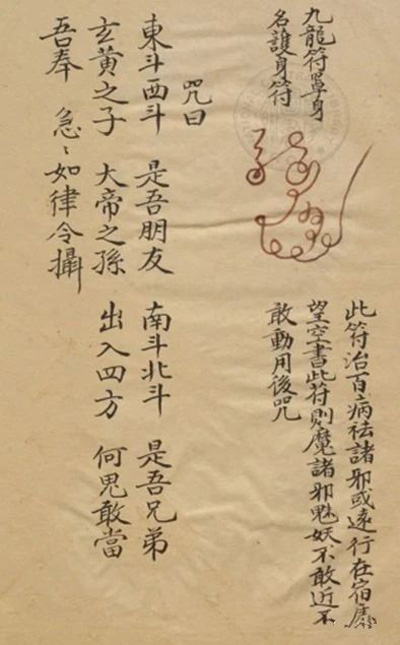 九龍符單身
名護身符
此符治百病祛諸邪或遠行在宿
望空書此符則魔諸邪魅妖不敢近不
敢動用後咒
咒曰
東斗西斗 是吾朋友 南斗北斗 是吾兄弟
玄黃之子 大帝之孫 出入四方 何鬼敢當
吾奉 急〻如律令攝